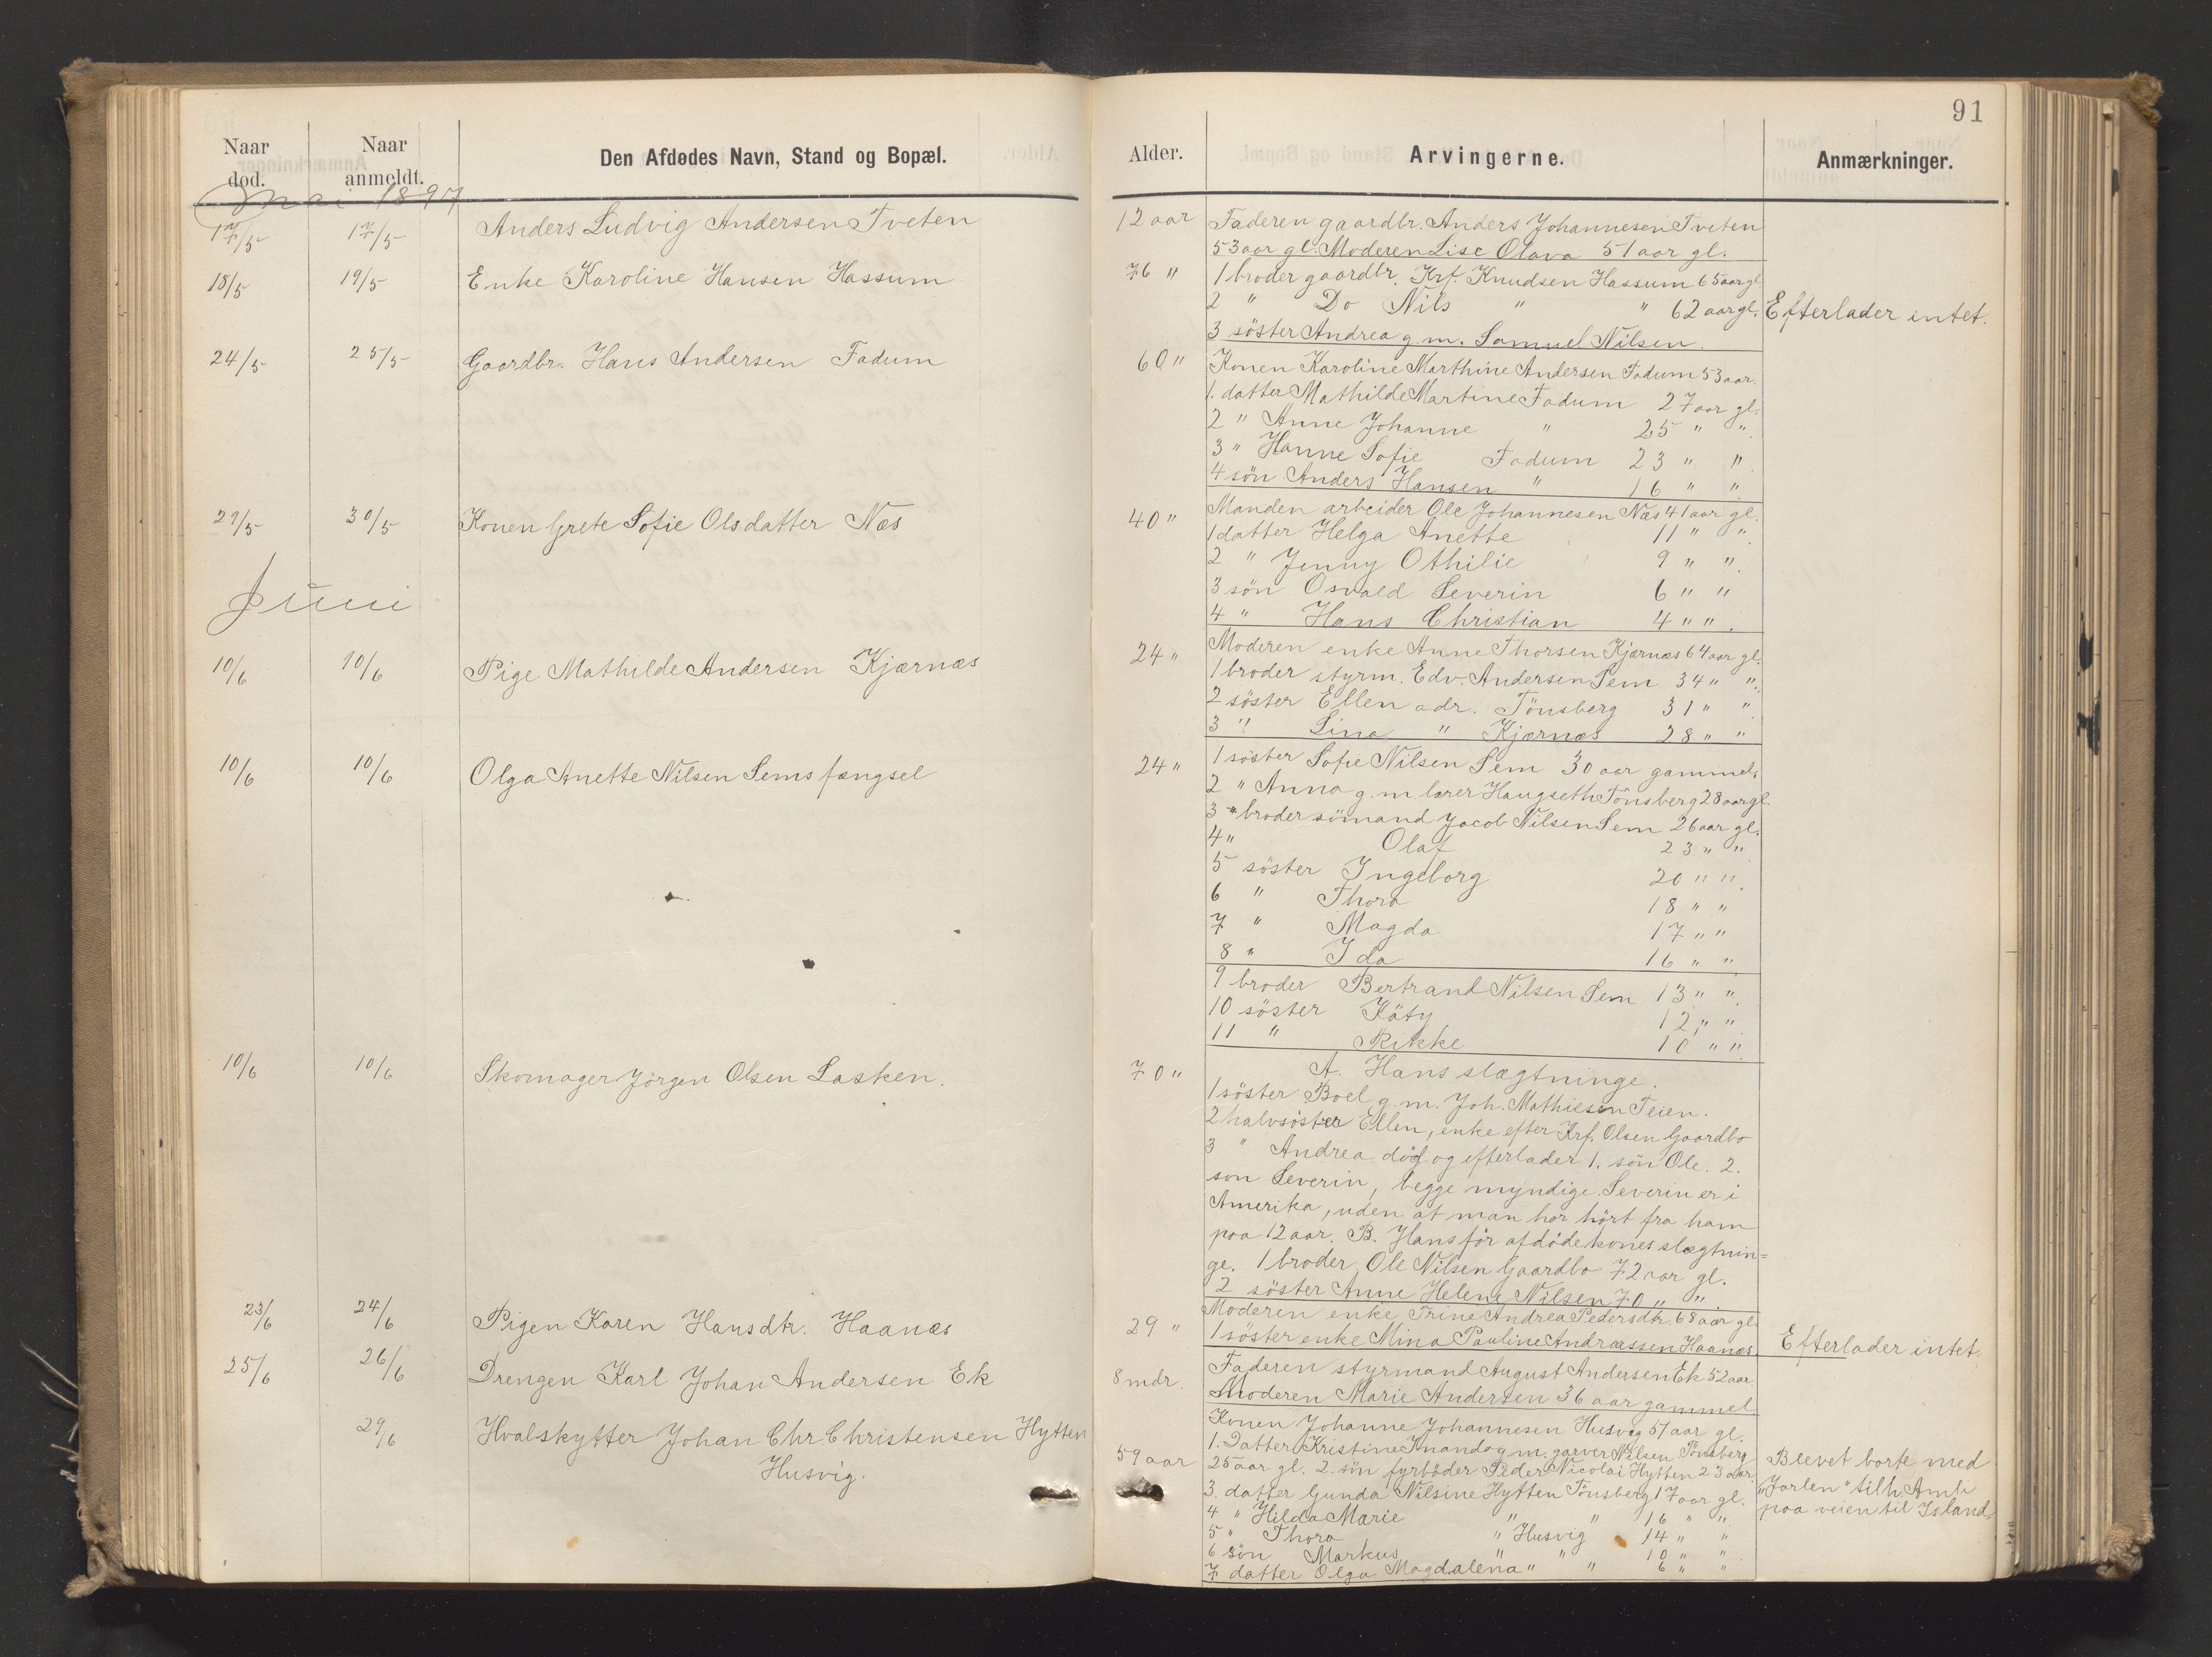 91
Naar død.
Naar anmeldt.
Den Afdødes Navn, Stand og Bopæl.
Alder.
Arvingerne.
Anmærkninger.
Mai 1897
17/5 17/5 Anders Ludvig Andersen Tveten 12 aar
Faderen gaardbr. Anders Johannesen Tveten
53 aar gl. Moderen Lise Olava 51 aar gl.
18/5 19/5 Enke Karoline Hansen Hassum 76 "
1 broder gaardbr. Krf. Knudsen Hassum 65 aar gl
2 " Do Nils " " 62 aar gl. Efterlader intet.
3 söster Andrea g. m. Samuel Nilsen.
24/5 25/5 Gaardbr. Hans Andersen Fadum 60 "
Konen Karoline Marthine Andersen Fadum 53 aar.
1. datter Mathilde Martine Fadum 27 aar gl.
2 " Anne Johanne " 25 " ".
3 " Hanne Sofie Fadum 23 " ".
4 sön Anders Hansen " 16 " ".
29/5 30/5 Konen Grete Sofie Olsdatter Næs 40 "
Manden arbeider Ole Johannesen Næs 41 aar gl.
1 datter Helga Anette 11 " ".
2 " Jenny Othilie 9 " ".
3 sön Osvald Severin 6 " "
4 " Hans Christian 4 " ".
Juni
10/6 10/6 Pige Mathilde Andersen Kjærnæs 24 "
Moderen enke Anne Thorsen Kjærnæs 64 aar gl.
1 broder styrm. Edv. Andersen Sem 34 " ".
2 söster Ellen adr. Tönsberg 31 " "
3 " Lina " Kjærnæs 28 " "
10/6 10/6 Olga Anette Nilsen Sems fængsel 24 "
1 söster Sofie Nilsen Sem 30 aar gammel.
2 " Anna g. m. lærer Haugseth Tönsberg 28 aar gl.
3 " broder sömand Jacob Nilsen Sem 26 aar gl.
4 " Olaf 23 " "
5 söster Ingeborg 20 " ".
6 " Thora 18 " "
7 " Magda 17 " "
8 " Ida 16 " "
9 broder Bertrand Nilsen Sem 13 " ".
10 söster Käty 12 " "
11 " Rikke 10 " ".
10/6 10/6 Skomager Jörgen Olsen Lasken. 70 "
A. Hans slægtninge.
1 söster Boel g. m. Joh. Mathiesen Teien.
2 halvsöster Ellen, enke efter Krf. Olsen Gaardbo
3 " Andrea död og efterlader 1. sön Ole. 2.
son Severin, begge myndige. Severin er i
Amerika, uden at man har hört fra ham
paa 12 aar. B. Hans för afdöde kones slægtnin=
ge. 1 broder Ole Nilsen Gaardbo 72 aar gl.
2 söster Anne Helene Nilsen 70 " ".
23/6 24/6 Pigen Karen Hansdtr. Haanæs 29 "
Moderen enke Trine Andrea Pedersdtr. 68 aar gl.
1 söster enke Mina Pauline Andraassen Haanæs. Efterlader intet.
25/6 26/6 Drengen Karl Johan Andersen Ek 8 mdr.
Faderen styrmand August Andersen Ek 52 aar.
Moderen Marie Andersen 36 aar gammel.
29/6 Hvalskytter Johan Chr. Christensen Hytten
Husvig. 59 aar
Konen Johanne Johannesen Husvig 51 aar gl.
1. Datter Kristine Knanda g. m. garver Nilsen Tönsberg
25 aar gl. 2. sön fyrböder Peder Nicolai Hytten 23 aar.
3. datter Gunda Nilsine Hytten Tönsberg 17 aar gl.
4 " Hilda Marie " " 16 " ".
5 " Thora " Husvig 14 " "
6 sön Markus " " 10 " "
7 datter Olga Magdalena " " 6 " "
Blevet borte med
"Jarlen" tilh. Amli
paa veien til Island.